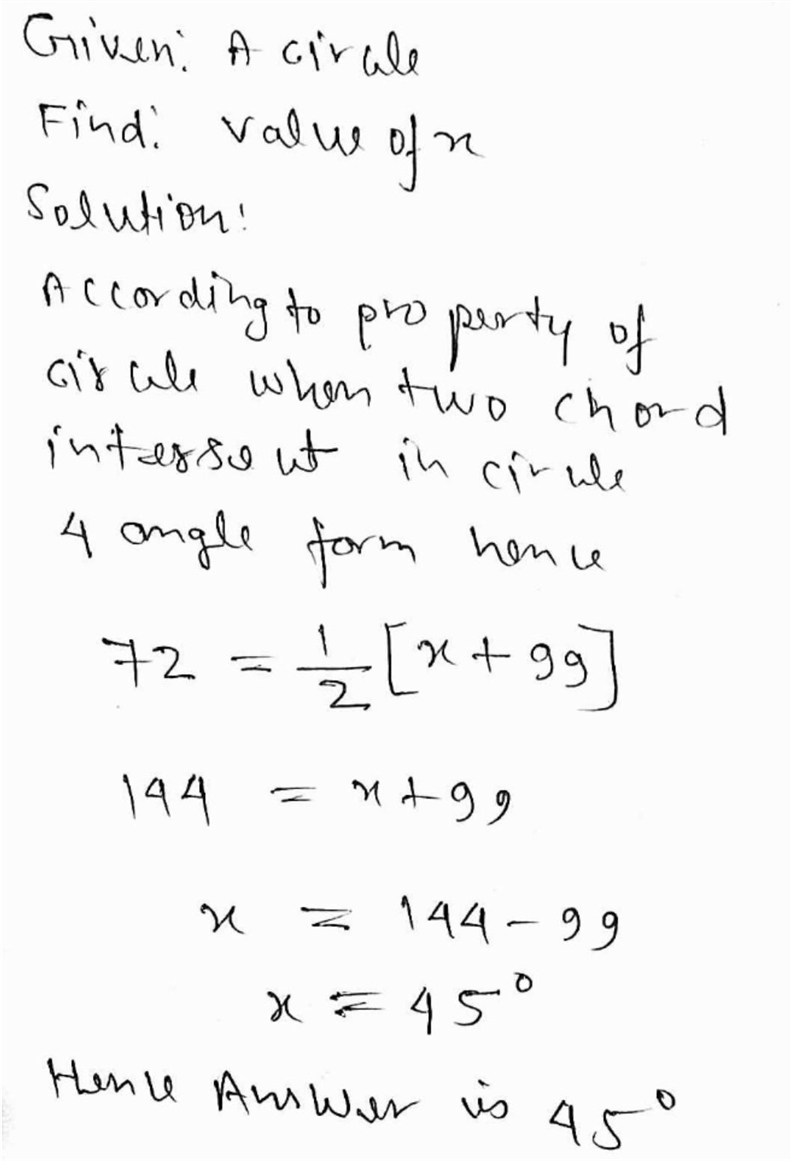 Given: A circle
Find: value of x
Solution:
According to property of
circle when two chord
intersect in circle
4 angle form hence
72 = 1/2 [x + 99]
144 = x + 99
x = 144 - 99
x = 45°
Hence Answer is 45°